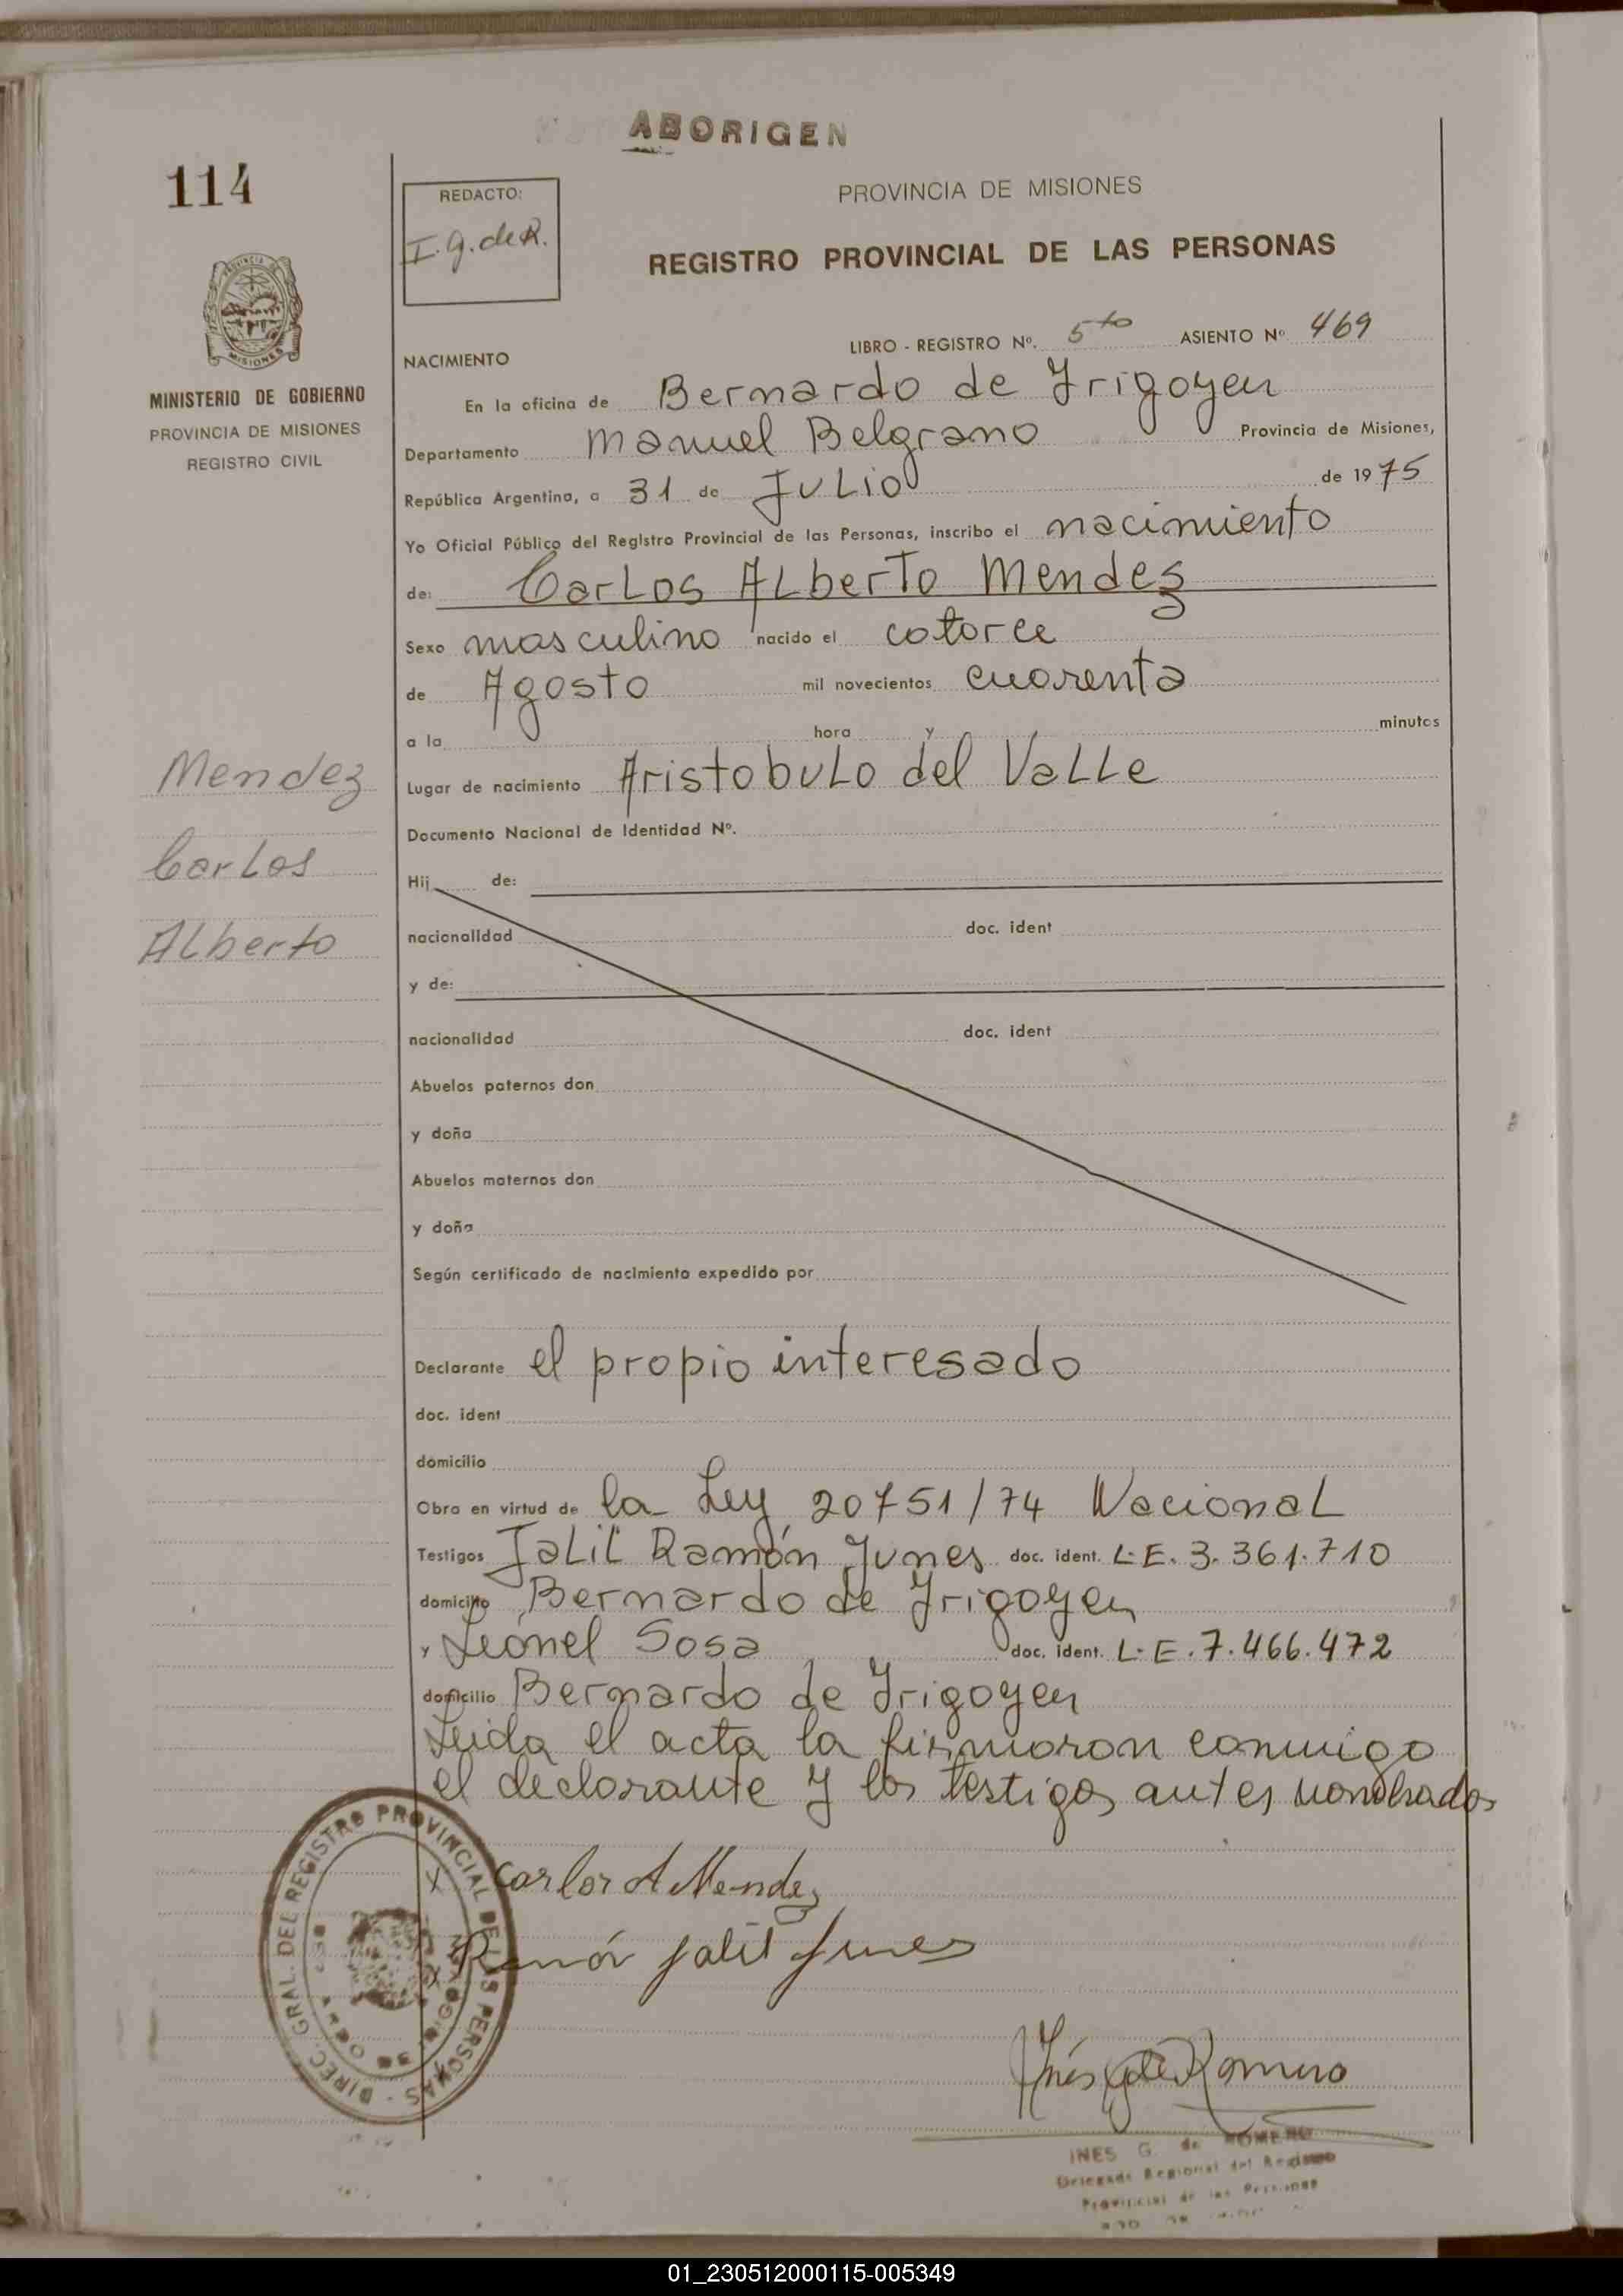 ABORIGEN
114
REDACTO:
I. G. de R.
PROVINCIA DE MISIONES
REGISTRO PROVINCIAL DE LAS PERSONAS
MISIONES
MINISTERIO DE GOBIERNO
PROVINCIA DE MISIONES
REGISTRO CIVIL
LIBRO - REGISTRO Nº. 5to ASIENTO Nº 469
NACIMIENTO
En la oficina de Bernardo de Irigoyen
Departamento Manuel Belgrano Provincia de Misiones,
República Argentina, a 31 de JULio de 1975
Yo Oficial Público del Registro Provincial de las Personas, inscribo el nacimiento
de: CarLos ALberTo Mendez
Sexo masculino nacido el catorce
de Agosto mil novecientos cuarenta
a la hora y minutos
Lugar de nacimiento AristobuLo del VaLLe
Documento Nacional de Identidad Nº.
Mendez
CarLos
ALberto
Hij de:
nacionalidad doc. ident
y de:
nacionalidad doc. ident
Abuelos paternos don
y doña
Abuelos maternos don
y doña
Según certificado de nacimiento expedido por
Declarante el propio interesado
doc. ident
domicilio
Obra en virtud de la Ley 20751/74 NacionaL
Testigos JaLiL Ramón Yunes doc. ident. L.E. 3.361.710
domicilio Bernardo de Irigoyen
y Leonel Sosa doc. ident. L.E. 7.466.472
domicilio Bernardo de Irigoyen
Leida el acta la firmaron conmigo
el declarante y los testigos antes nombrados
x Carlos A Mendez
x Ramón Jalil Junes
DIREC. GRAL. DEL REGISTRO PROVINCIAL DE LAS PERSONAS
Inés G de Romero
INES G. de ROMERO
Delegada Regional del Registro
Provincial de las Personas
01_230512000115-005349